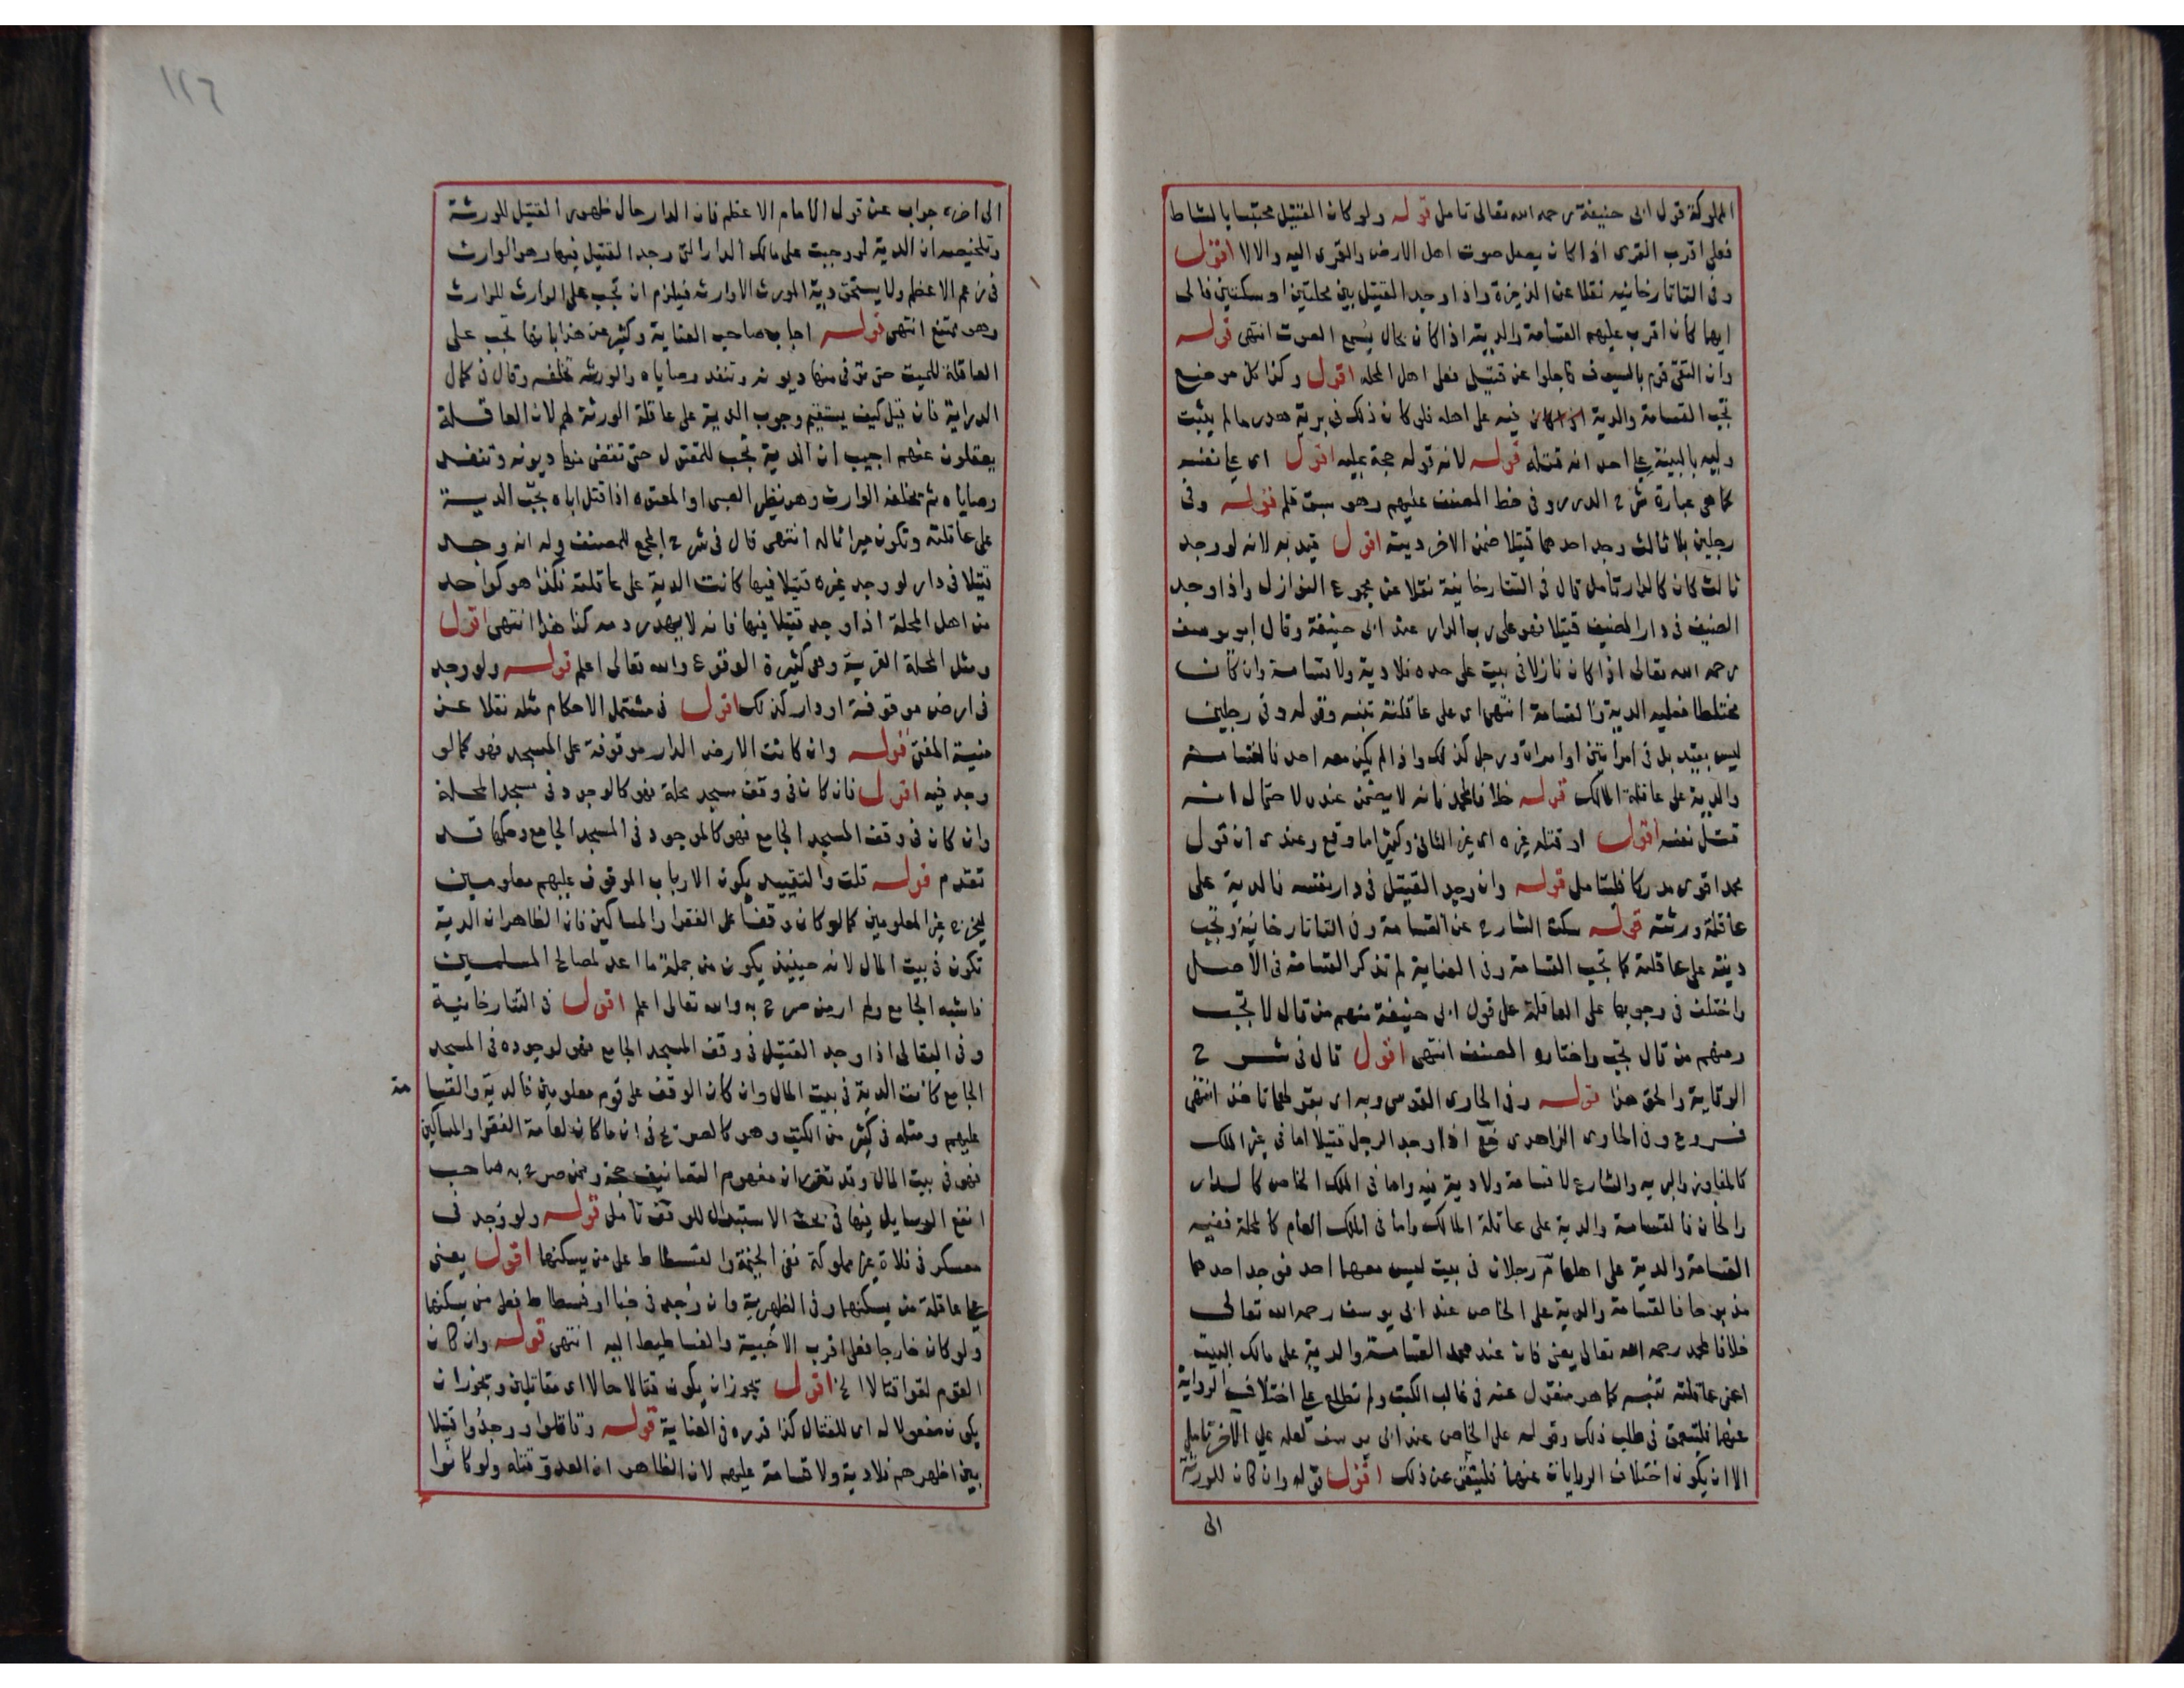 المملوكة قول ابى حنيفة رحمه الله تعالى تامل قوله ولو كان القتيل محتبسا بالشاط
فعلى اقرب القرى اذا كان يصل صوت اهل الارض والقرى اليه والا لا اقول
وفى التاتارخانيه نقلا عن الذخيرة واذا وجد القتيل بين محلتين او سكتين فالى
ايهما كان اقرب عليهم القسامة والدية اذا كان بحال يسمع الصوت انتهى قوله
وان التقى قوم بالسيوف فاجلوا عن قتيل فعلى اهل المحلة اقول وكذا كل موضع
تجب القسامة والدية فيه على اهله فلو كان ذلك فى برية هدر ما لم يثبت
وليه بالبينة على احد انه قتله قوله لانه قوله حجة عليه اقول اى على نفسه
كما هى عبارة شرح الدرر وفى خط المصنف عليهم وهو سبق قلم قوله وفى
رجلين بلا ثالث وجد احدهما قتيلا ضمن الاخر ديته اقول قيد به لانه لو وجد
ثالث كان كالدار تامل قال فى التتارخانية نقلا عن مجموع النوازل واذا وجد
الضيف فى دار المضيف قتيلا فهو على رب الدار عند ابى حنيفة وقال ابو يوسف
رحمه الله تعالى اذا كان نازلا فى بيت على حده فلا دية ولا قسامة وان كان
مختلطا فعليه الدية والقسامة انتهى اى على عاقلته تنبه وقوله وفى رجلين
ليس بقيد بل فى امراتين او امراة ورجل كذلك واذا لم يكن معه احد فالقسامة
والدية على عاقلة المالك قوله خلافا لمحمد فانه لا يضمن عنده لاحتمال انه
قتل نفسه اقول او قتله غيره اى غير الثانى وكثيرا ما وقع وعندى ان قول
محمد اقوى مدركا فليتامل قوله وان وجد القتيل فى دار نفسه فالدية على
عاقلة ورثته قوله سكت الشارح عن القسامة وفى التاتارخانية وتجب
ديته على عاقلته كما تجب القسامة وفى العناية لم تذكر القسامة فى الاصل
واختلف فى وجوبها على العاقلة على قول ابى حنيفة منهم من قال لا تجب
ومنهم من قال تجب واختاره المصنف انتهى اقول قال فى شرح
الوقاية والحق هذا قوله وفى الحاوى القدسى وبه اى بقولهما ناخذ انتهى
فروع وفى الحاوى الزاهدى اذا وجد الرجل قتيلا اما فى غير الملك
كالمفاوز والبريه والشارع لا قسامة ولا دية فيه واما فى الملك الخاص كالدار
والخان فالقسامة والدية على عاقلة المالك واما فى الملك العام كالمحلة ففيه
القسامة والدية على اهلها رجلان فى بيت ليس معهما احد فوجد احدهما
مذبوحا فالقسامة والدية على الخاص عند ابى يوسف رحمه الله تعالى
خلافا لمحمد رحمه الله تعالى يعنى فان عند محمد القسامة والدية على مالك البيت
اعنى عاقلته تنبه كما هو منقول عنه فى غالب الكتب ولم نطلع على اختلاف الرواية
عنهما فليتعمق فى طلب ذلك وقوله على الخاص عند ابى يوسف لعله على الاخر تامل
الا ان يكون اختلاف الروايات عنهما فليتفحص عن ذلك اقول قوله وان كان للورثة
الى
١١٦
الى اخره جواب عن قول الامام الاعظم فان الدار حال ظهور القتيل للورثة
وتلخيصه ان الدية لو وجبت على مالك الدار التى وجد القتيل فيها وهو الوارث
فى زعم الاعظم ولا يستحق دية المورث الا وارثه فيلزم ان تجب على الوارث للوارث
وهو ممتنع انتهى قوله اجاب صاحب العناية وكثير عن هذا بانها تجب على
العاقلة للميت حتى توفى منها ديونه وتنفذ وصاياه والورثه تخلفه وقال فى كمال
الدراية فان قيل كيف يستقيم وجوب الدية على عاقلة الورثة لهم لان العاقلة
يعقلون عنهم اجيب ان الدية تجب للمقتول حتى تقضى منها ديونه وتنفذ
وصاياه ثم يخلفه الوارث وهو نظير الصبى او المعتوه اذا قتل اباه تجب الدية
على عاقلته وتكون ميراثا له انتهى قال فى شرح المجمع للمصنف وله انه وجد
قتيلا فى دار لو وجد غيره قتيلا فيها كانت الدية على عاقلته فكذا هو كواحد
من اهل المحلة اذا وجد قتيلا فيها فانه لا يهدر دمه كذا هذا انتهى اقول
ومثل المحلة القرية وهى كثيرة الوقوع والله تعالى اعلم قوله ولو وجد
فى ارض موقوفة او دار كذلك اقول فى مشتمل الاحكام مثله نقلا عن
منية المفتى قوله وان كانت الارض الدار موقوفة على المسجد فهو كما لو
وجد فيه اقول فان كان فى وقف مسجد محلة فهو كالوجود فى مسجد المحلة
وان كان فى وقف المسجد الجامع فهو كالموجود فى المسجد الجامع وحكمها قد
تقدم قوله قلت والتقييد بكون الارباب الموقوف عليهم معلومين
ليخرج غير المعلومين كما لو كان وقفا على الفقرا والمساكين فان الظاهر ان الدية
تكون فى بيت المال لانه حينيذ يكون من جملة ما اعد لمصالح المسلمين
فاشبه الجامع ولم ار من صرح به والله تعالى اعلم اقول فى التتارخانية
وفى البقالى اذا وجد القتيل فى وقف المسجد الجامع فهو لوجوده فى المسجد
الجامع كانت الدية فى بيت المال وان كان الوقف على قوم معلومين فالدية والقسا مة
عليهم ومثله فى كثير من الكتب وهو كالصريح فى ان ما كان لعامة الفقرا والمساكين
فهو فى بيت المال وقد تقرر ان مفهوم التصانيف حجة وممن صرح به صاحب
انفع الوسايل فيها فى بحث الاستبدال للوقف تامل قوله ولو وجد فى
معسكر فى فلاة غير مملوكة ففى الخيمة والفسطاط على من يسكنها اقول يعنى
على عاقلة من يسكنهما وفى الظهرية وان وجد فى خبا او فسطاط فعلى من يسكنها
ولو كان خارجا فعلى اقرب الاخبية والفساطيط اليه انتهى قوله وان كان
القوم لقوا قتالا الخ اقول يجوز ان يكون قتالا حالا اى مقاتلين ويجوز ان
يكون مفعولا له اى للقتال كذا قرره فى العناية قوله وقاتلوا ووجدوا قتيلا
بين اظهرهم فلا دية ولا قسامة عليهم لان الظاهر ان العدو قتله ولو كانوا